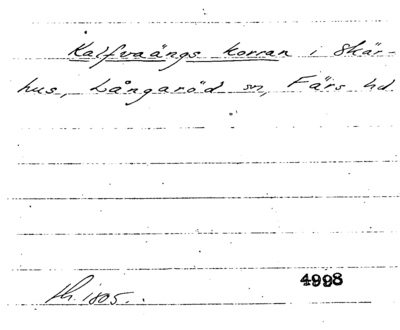 Kalfvaängs korran i Skär-
hus, Långaröd sn, Färs hd.
4998
Sk. 1805.